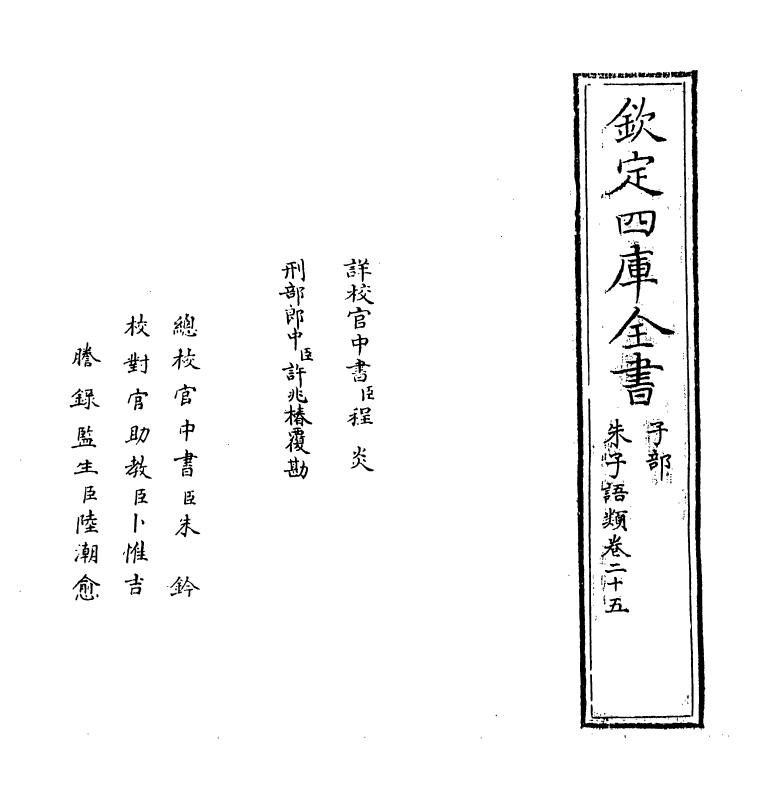 欽定四庫全書
子部
朱子語類卷二十五
詳校官中書臣程炎
刑部郎中臣許兆椿覆勘
總校官中書臣朱鈐
校對官助教臣卜惟吉
謄錄監生臣陸潮愈